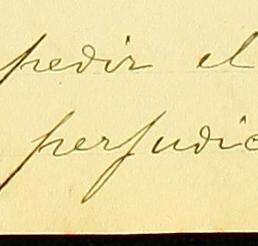 pedir el
perjudic